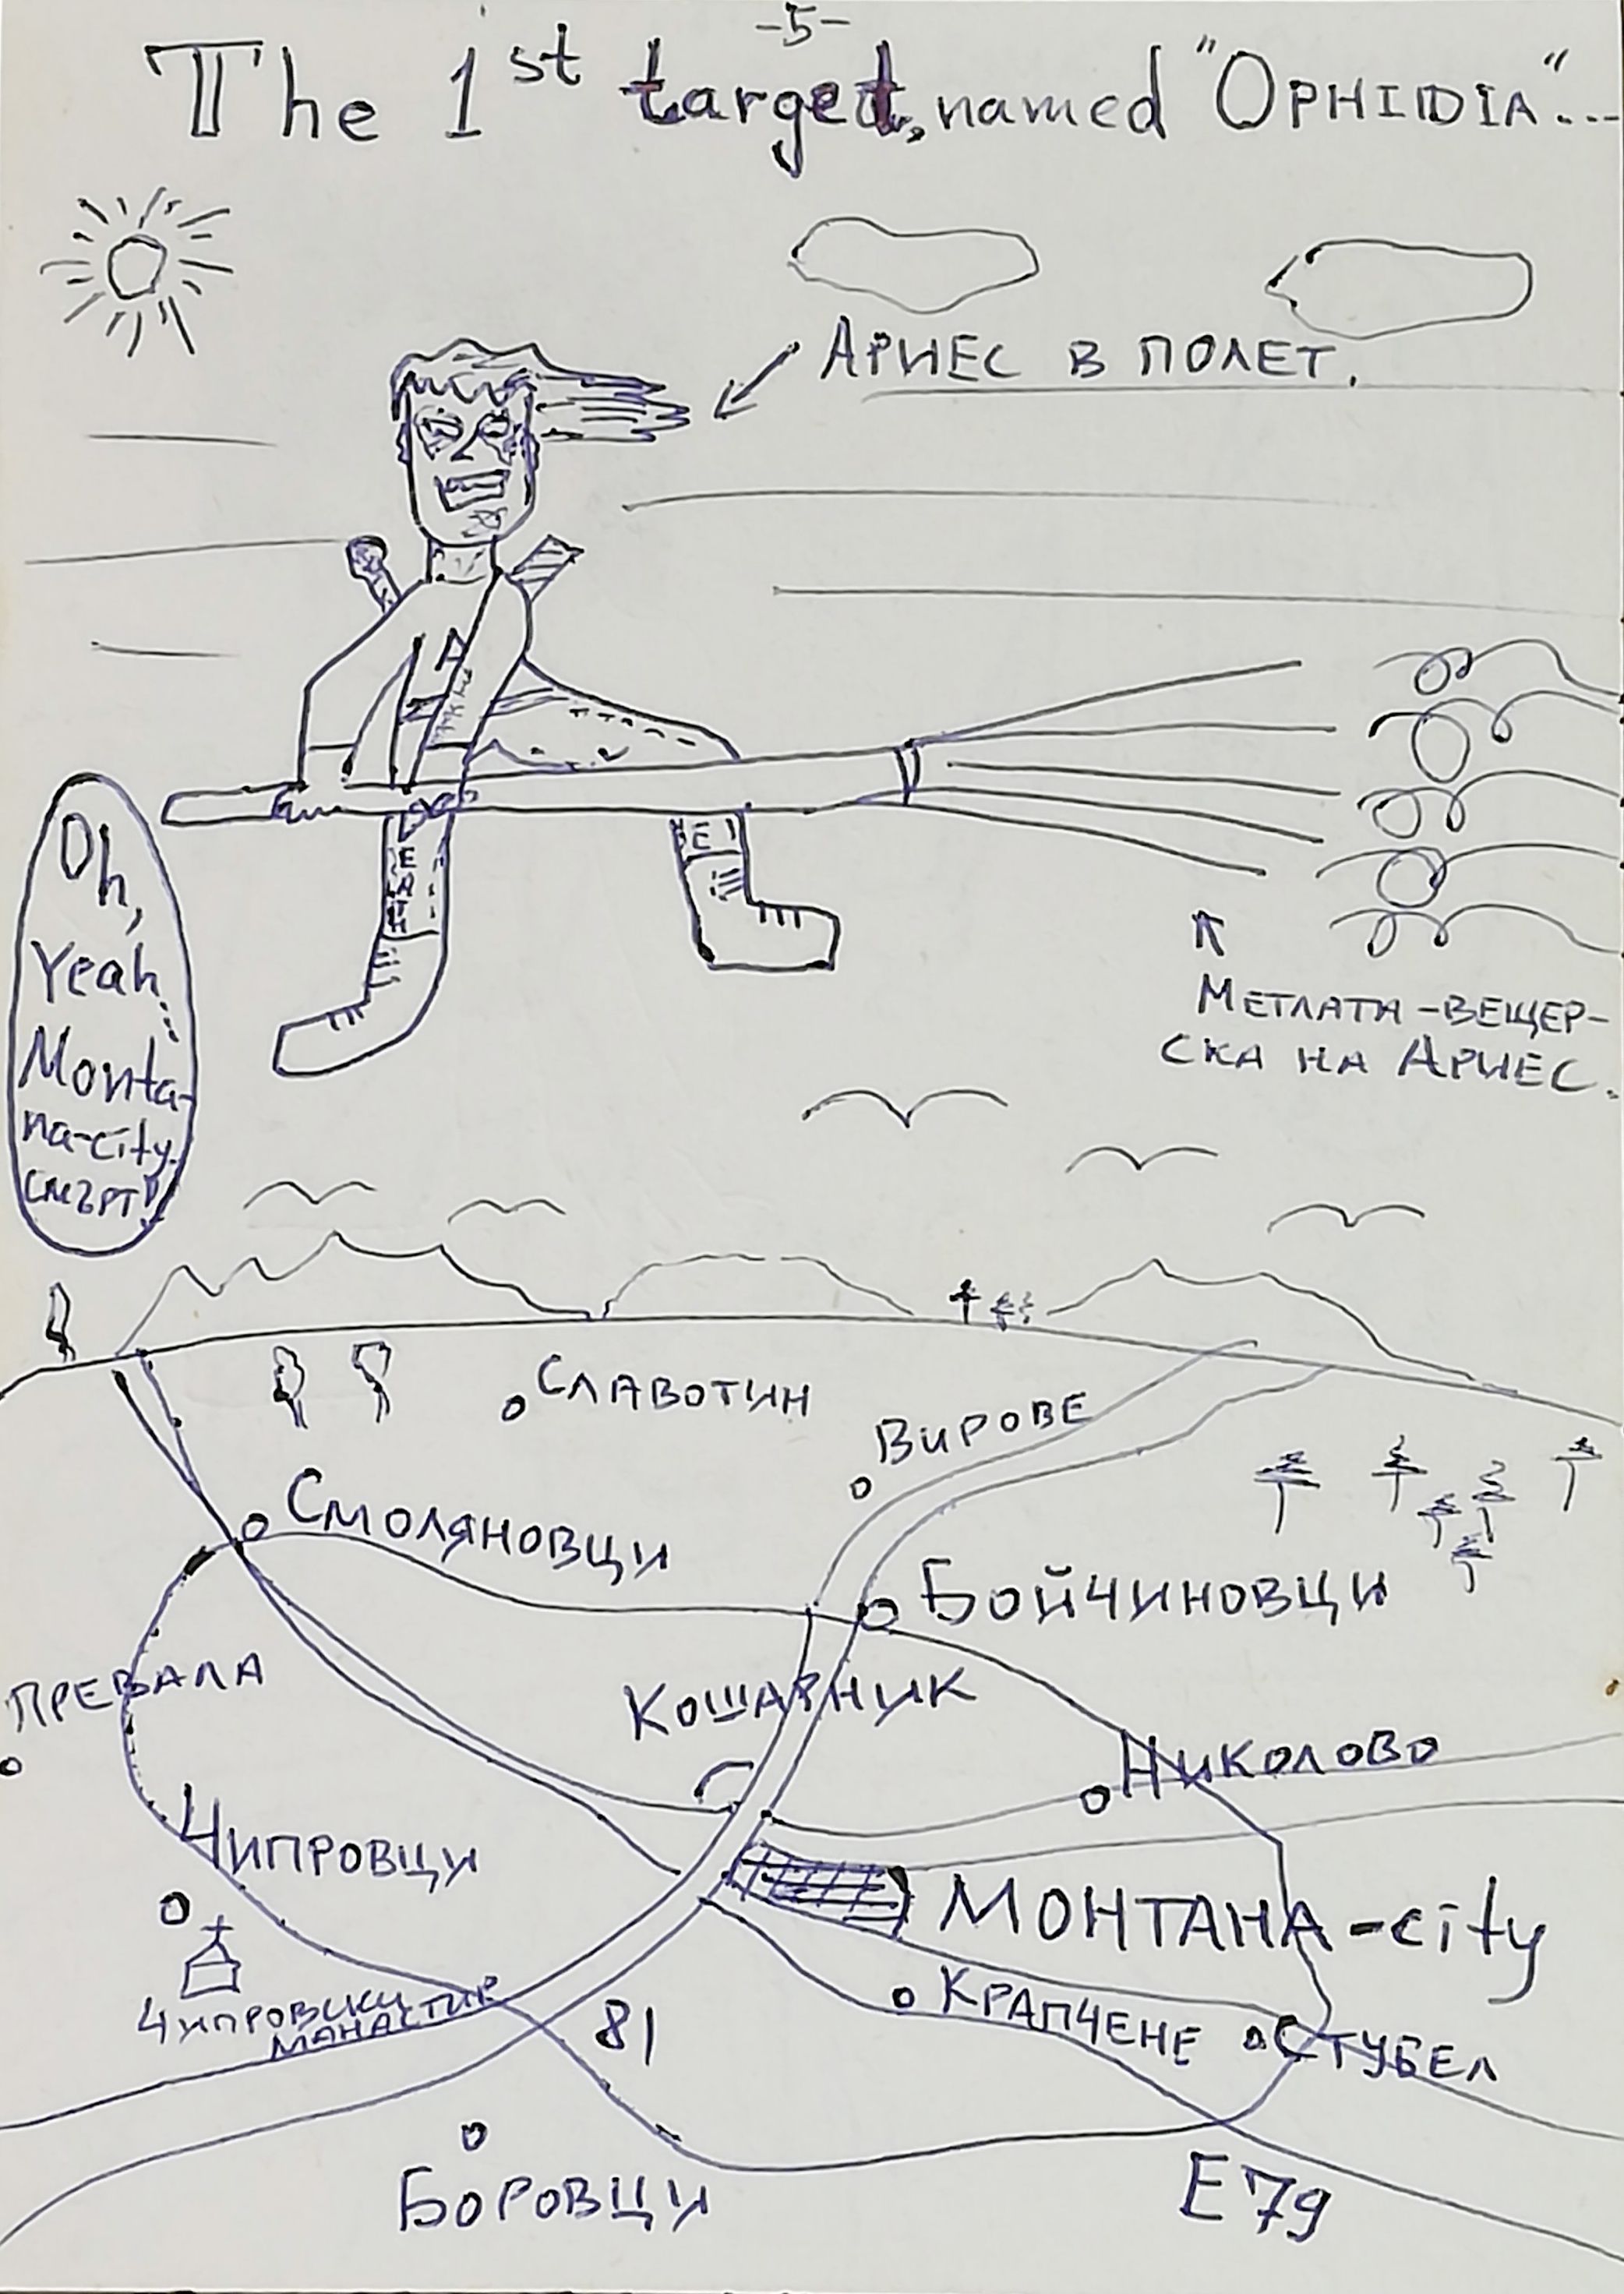 -5-
The 1st target, named "OPHIDIA"...
АРИЕС В ПОЛЕТ.
A
DEATH
Oh,
Yeah...
Monta-
na-city.
СМЪРТ!
МЕТЛАТА-ВЕЩЕР-
СКА НА АРИЕС.
СЛАВОТИН
ВИРОВЕ
СМОЛЯНОВЦИ
БОЙЧИНОВЦИ
ПРЕВАЛА
КОШАРНИК
НИКОЛОВО
ЧИПРОВЦИ
МОНТАНА-city
ЧИПРОВСКИ
МАНАСТИР
81
КРАПЧЕНЕ
СТУБЕЛ
БОРОВЦИ
E79